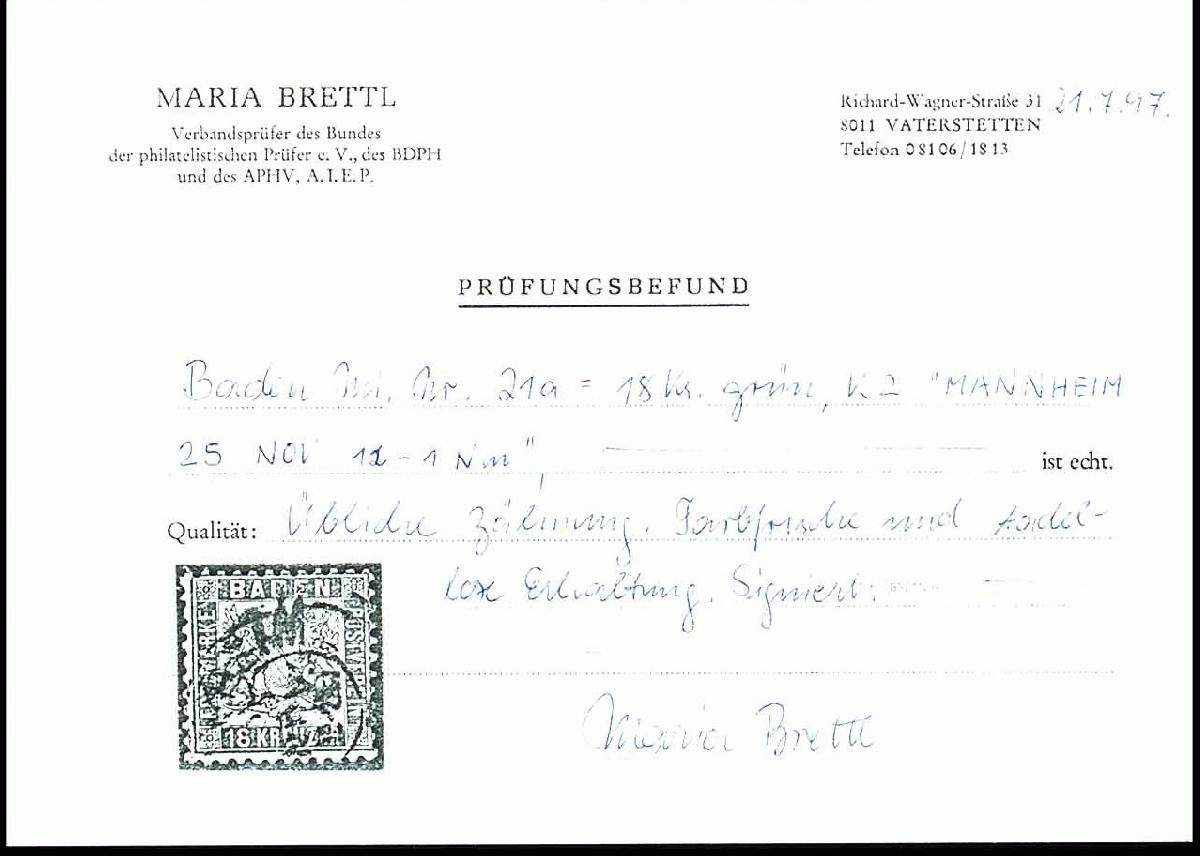 MARIA BRETTL
Verbandsprüfer des Bundes
der philatelistischen Prüfer e. V., des BDPH
und des APHV, A.I.E.P.
Richard-Wagner-Straße 31 21.7.97.
8011 VATERSTETTEN
Telefon 08106/1813
PRÜFUNGSBEFUND
Baden Mi. Nr. 21a = 18 Kr. grün, K2 "MANNHEIM
25 NOV 12-1 Nm", ist echt.
Qualität: Übliche Zähnung. Farbfrische und tadel-
lose Erhaltung. Signiert:
BADEN
POSTVEREIN
18 KREUZER
Maria Brettl